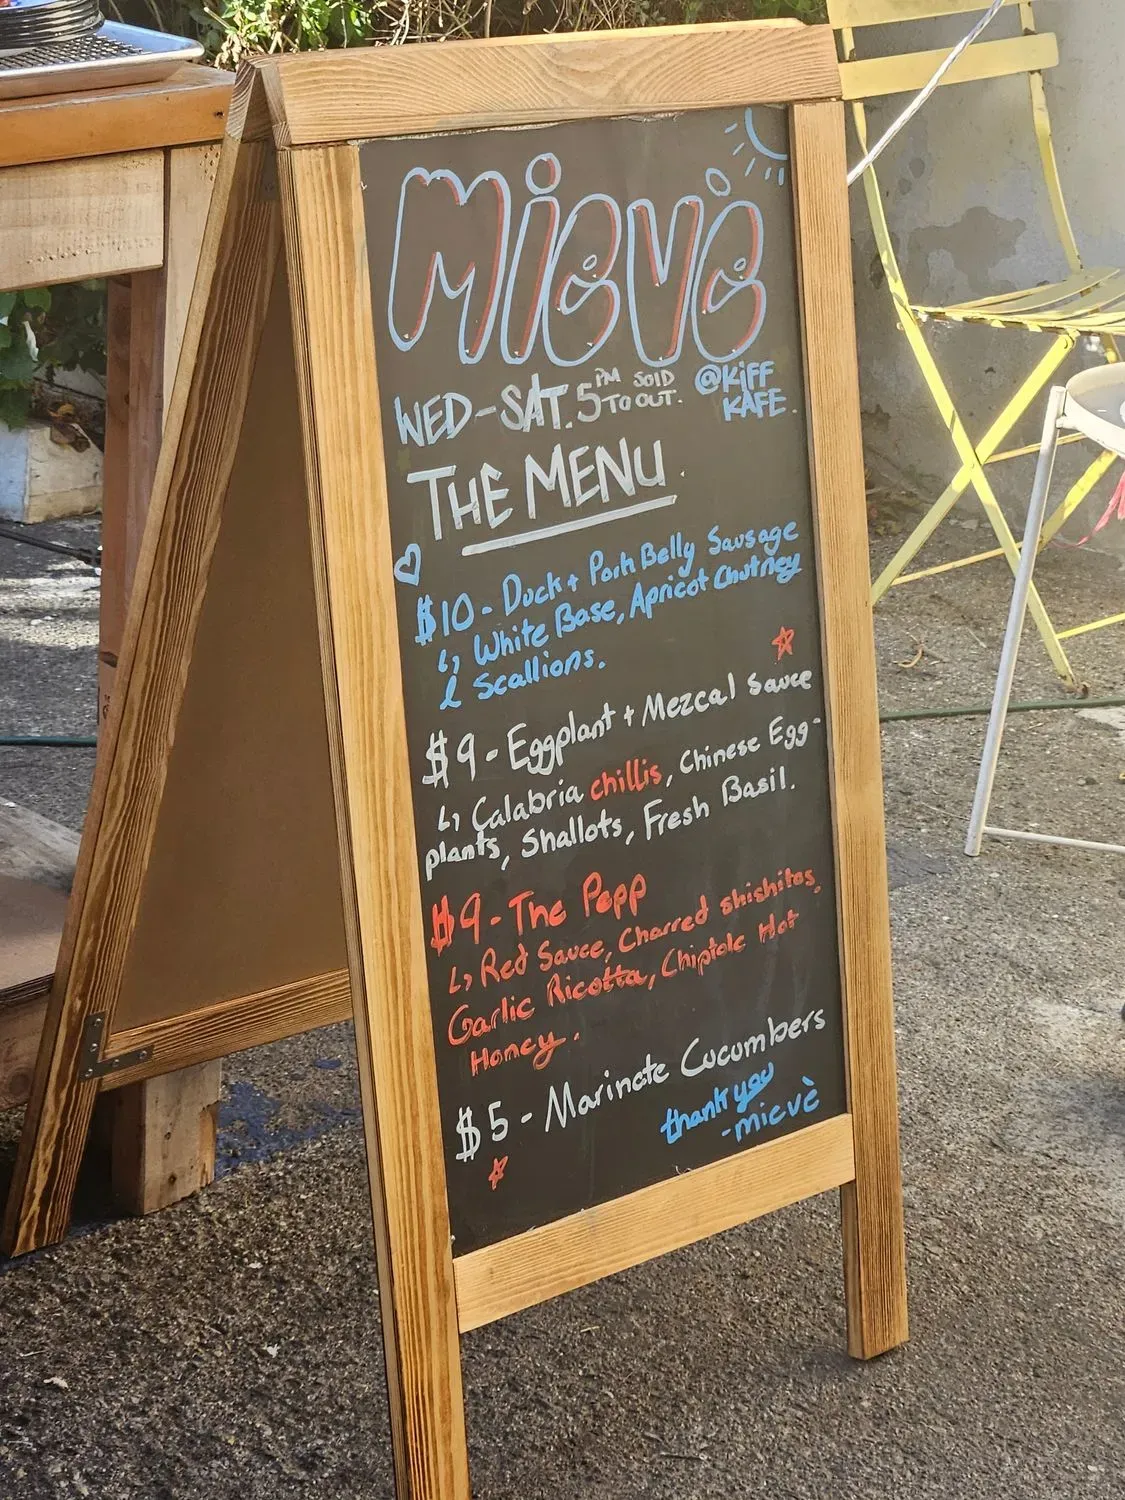 Mievè
WED-SAT. 5PM TO SOLD OUT. @KiFF KAFE.
THE MENU.
$10 - Duck + Pork Belly Sausage
↳ White Base, Apricot Chutney
& Scallions.
$9 - Eggplant + Mezcal Sauce
↳ Calabria chillis, Chinese Egg-
plants, Shallots, Fresh Basil.
$9 - The Pepp
↳ Red Sauce, Charred shishitos,
Garlic Ricotta, Chiptole Hot
Honey.
$5 - Marinate Cucumbers
thank you
- mievè